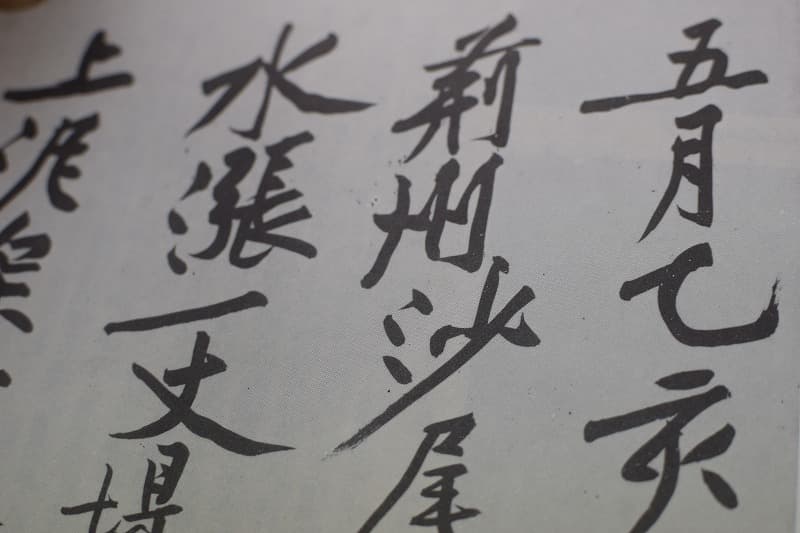 五月乙亥
荊州沙尾
水漲一丈堤
上泥